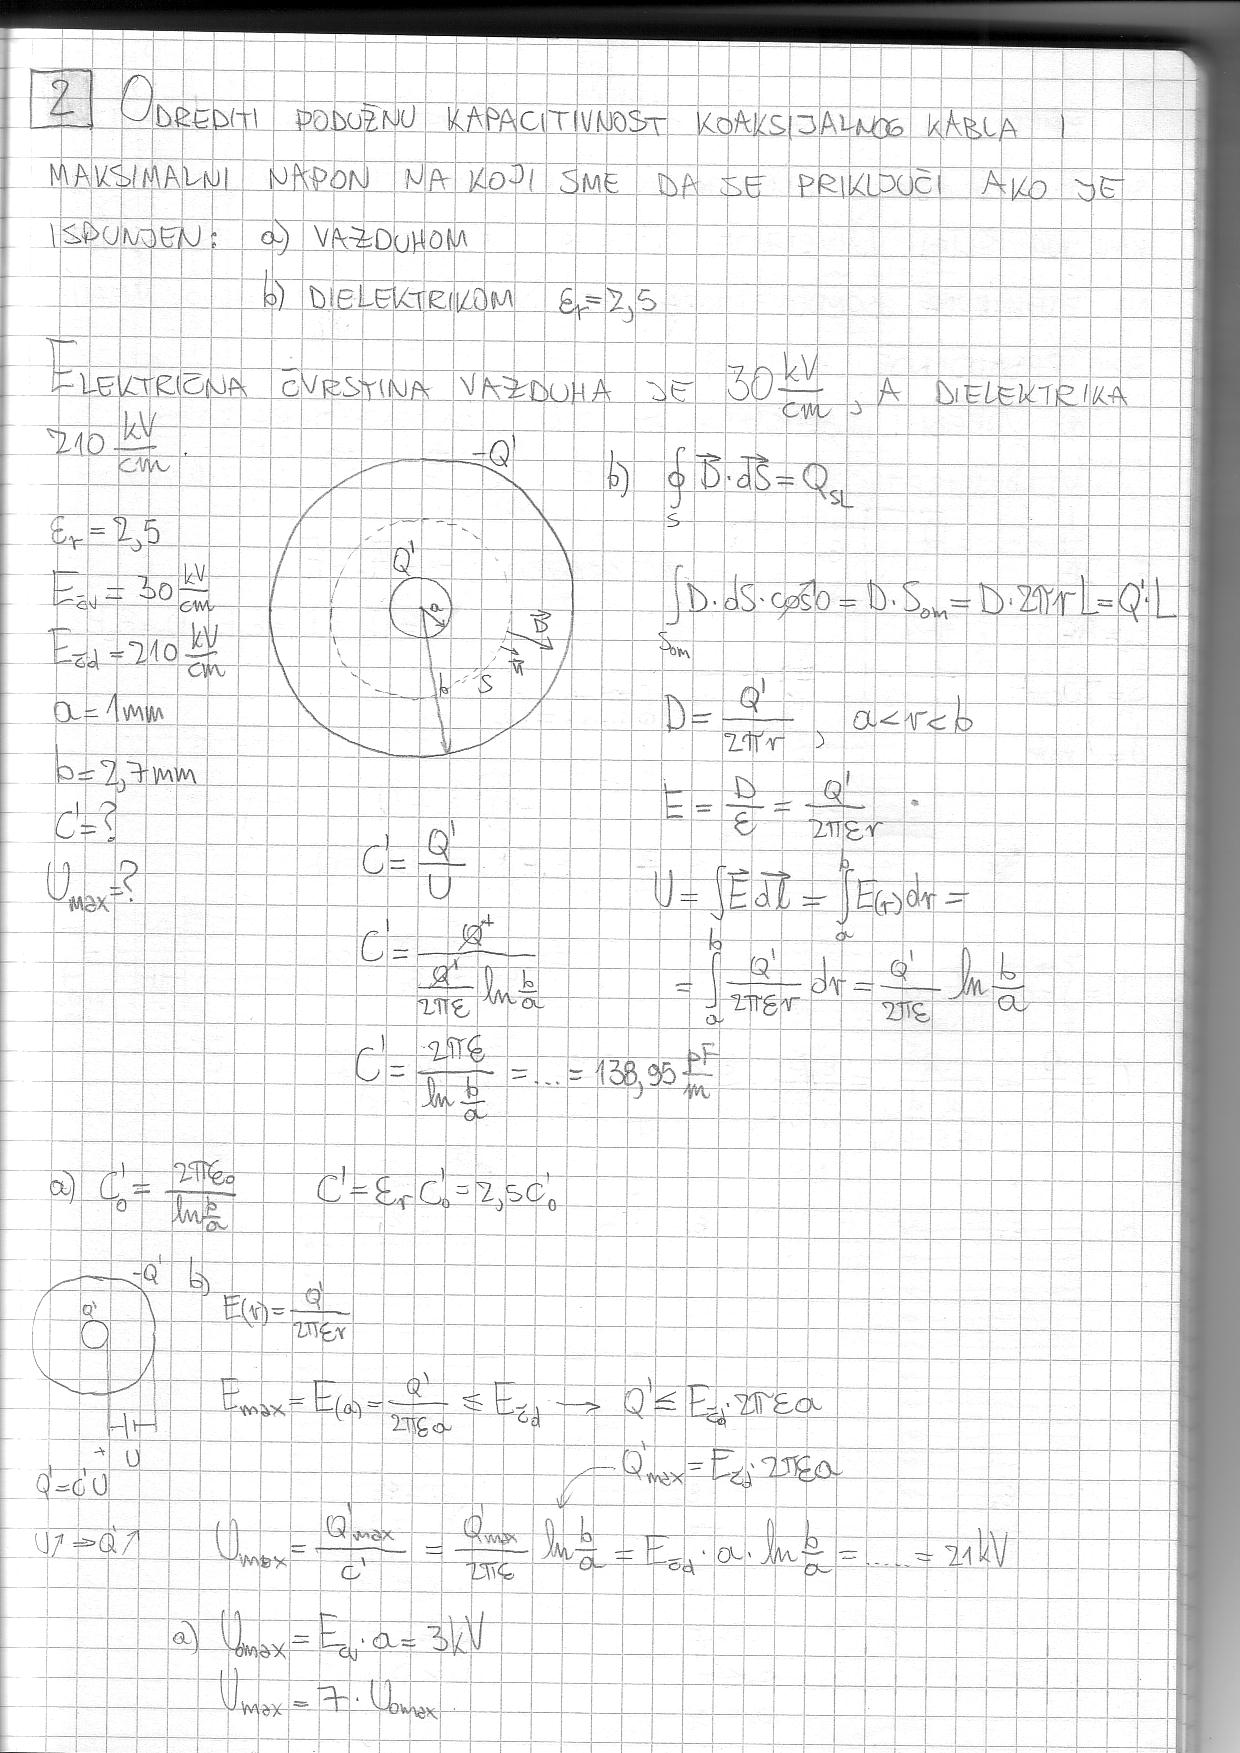 2 ODREDITI PODUŽNU KAPACITIVNOST KOAKSIJALNOG KABLA I
MAKSIMALNI NAPON NA KOJI SME DA SE PRIKLJUČI AKO JE
ISPUNJEN: a) VAZDUHOM
b) DIELEKTRIKOM εr=2,5
ELEKTRIČNA ČVRSTINA VAZDUHA JE 30 kV/cm, A DIELEKTRIKA
210 kV/cm.
εr=2,5
Ečv=30 kV/cm
Ečd=210 kV/cm
a=1mm
b=2,7mm
C'=?
Umax=?
-Q'
Q'
a
b
S
D⃗
n⃗
b) ∮S D⃗·dS⃗=QSL
∫Som D·dS·cos0=D·Som=D·2πrL=Q'·L
D=Q'/2πr, a<r<b
E=D/ε=Q'/2πεr
U=∫E⃗dl⃗=∫ₐᵇE(r)dr=
=∫ₐᵇ Q'/2πεr dr=Q'/2πε ln b/a
C'=Q'/U
C'=Q'/(Q'/2πε ln b/a)
C'=2πε/(ln b/a)=...=138,95 pF/m
a) C'0=2πε0/(ln b/a) C'=εrC'0=2,5C'0
-Q'
Q'
+ U
Q'=C'U
U↑⇒Q'↑
b) E(r)=Q'/2πεr
Emax=E(a)=Q'/2πεa ≤ Ečd → Q'≤Ečd·2πεa
Q'max=Ečd·2πεa
Umax=Q'max/C'=Q'max/2πε ln b/a=Ečd·a·ln b/a=.....=21kV
a) U0max=Ečv·a=3kV
Umax=7·U0max